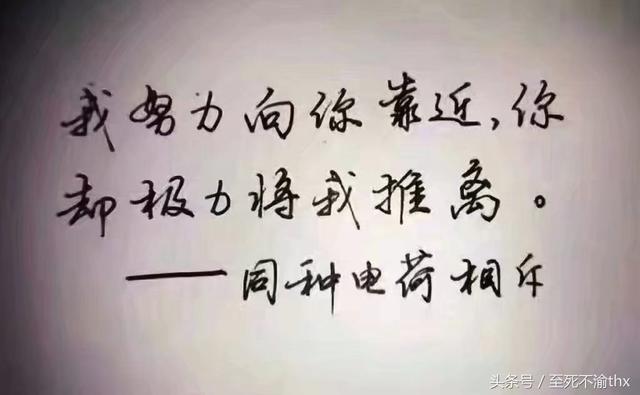 我努力向你靠近,你
却极力将我推离。
——同种电荷相斥
头条号／至死不渝thx